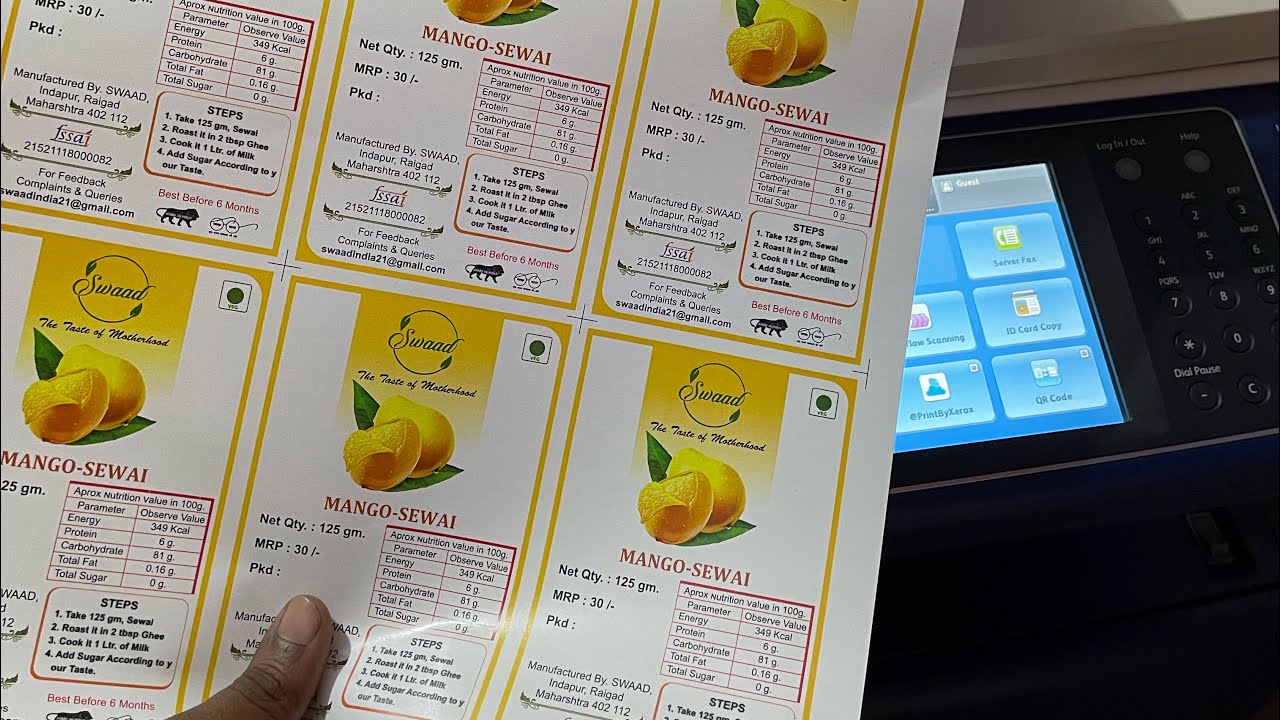 MRP : 30 /-
Pkd :
Aprox Nutrition value in 100g.
Parameter Observe Value
Energy 349 Kcal
Protein 6 g.
Carbohydrate 81 g.
Total Fat 0.16 g.
Total Sugar 0 g.
Manufactured By. SWAAD,
Indapur, Raigad
Maharshtra 402 112
fssai
21521118000082
For Feedback
Complaints & Queries
swaadindia21@gmail.com
STEPS
1. Take 125 gm, Sewai
2. Roast it in 2 tbsp Ghee
3. Cook it 1 Ltr. of Milk
4. Add Sugar According to y
our Taste.
Best Before 6 Months
MANGO-SEWAI
Net Qty. : 125 gm.
MRP : 30 /-
Pkd :
Aprox Nutrition value in 100g.
Parameter Observe Value
Energy 349 Kcal
Protein 6 g.
Carbohydrate 81 g.
Total Fat 0.16 g.
Total Sugar 0 g.
Manufactured By. SWAAD,
Indapur, Raigad
Maharshtra 402 112
fssai
21521118000082
For Feedback
Complaints & Queries
swaadindia21@gmail.com
STEPS
1. Take 125 gm, Sewai
2. Roast it in 2 tbsp Ghee
3. Cook it 1 Ltr. of Milk
4. Add Sugar According to y
our Taste.
Best Before 6 Months
MANGO-SEWAI
Net Qty. : 125 gm.
MRP : 30 /-
Pkd :
Aprox Nutrition value in 100g.
Parameter Observe Value
Energy 349 Kcal
Protein 6 g.
Carbohydrate 81 g.
Total Fat 0.16 g.
Total Sugar 0 g.
Manufactured By. SWAAD,
Indapur, Raigad
Maharshtra 402 112
fssai
21521118000082
For Feedback
Complaints & Queries
swaadindia21@gmail.com
STEPS
1. Take 125 gm, Sewai
2. Roast it in 2 tbsp Ghee
3. Cook it 1 Ltr. of Milk
4. Add Sugar According to y
our Taste.
Best Before 6 Months
Swaad
The Taste of Motherhood
VEG
MANGO-SEWAI
25 gm.
Aprox Nutrition value in 100g.
Parameter Observe Value
Energy 349 Kcal
Protein 6 g.
Carbohydrate 81 g.
Total Fat 0.16 g.
Total Sugar 0 g.
WAAD,
STEPS
1. Take 125 gm, Sewai
2. Roast it in 2 tbsp Ghee
3. Cook it 1 Ltr. of Milk
4. Add Sugar According to y
our Taste.
Best Before 6 Months
Swaad
The Taste of Motherhood
VEG
MANGO-SEWAI
Net Qty. : 125 gm.
MRP : 30 /-
Pkd :
Aprox Nutrition value in 100g.
Parameter Observe Value
Energy 349 Kcal
Protein 6 g.
Carbohydrate 81 g.
Total Fat 0.16 g.
Total Sugar 0 g.
WAAD,
STEPS
1. Take 125 gm, Sewai
2. Roast it in 2 tbsp Ghee
3. Cook it 1 Ltr. of Milk
4. Add Sugar According to y
our Taste.
Swaad
The Taste of Motherhood
VEG
MANGO-SEWAI
Net Qty. : 125 gm.
MRP : 30 /-
Pkd :
Aprox Nutrition value in 100g.
Parameter Observe Value
Energy 349 Kcal
Protein 6 g.
Carbohydrate 81 g.
Total Fat 0.16 g.
Total Sugar 0 g.
Manufactured By. SWAAD,
Indapur, Raigad
Maharshtra 402 112
STEPS
1. Take 125 gm, Sewai
2. Roast it in 2 tbsp Ghee
3. Cook it 1 Ltr. of Milk
4. Add Sugar According to y
our Taste.
Guest
Server Fax
low Scanning
ID Card Copy
@PrintByXerox
QR Code
Log In / Out
Help
ABC DEF
1 2 3
GHI JKL MNO
4 5 6
PQRS TUV WXYZ
7 8 9
* 0
Dial Pause
- C